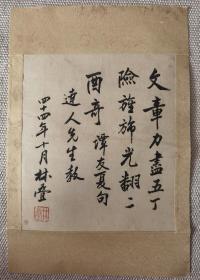 文章力盡五丁
險旌旆光翻二
酉奇 譚友夏句
達人先生教
四十四年十月 林堂